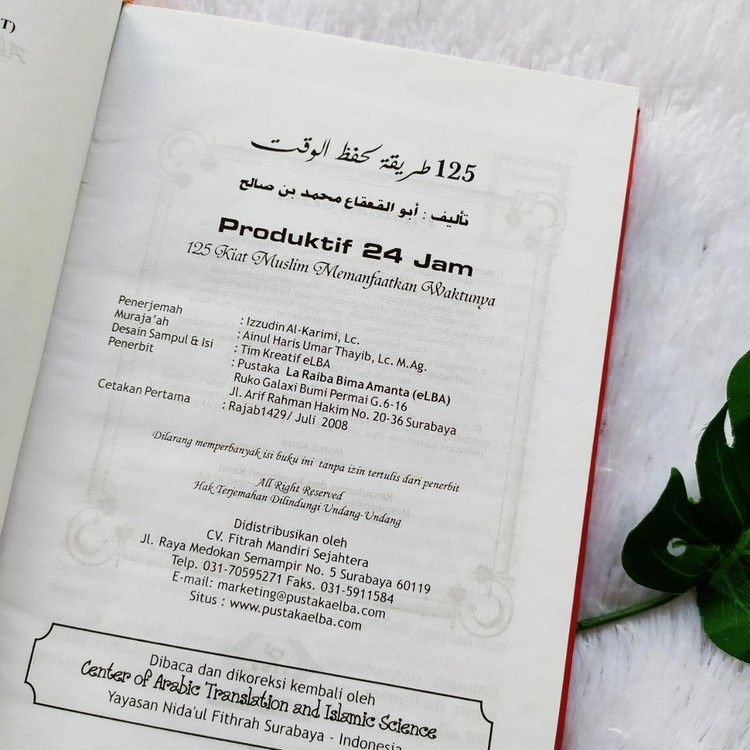 T)
125 طريقة لحفظ الوقت
تأليف : أبو القعقاع محمد بن صالح
Produktif 24 Jam
125 Kiat Muslim Memanfaatkan Waktunya
Penerjemah : Izzudin Al-Karimi, Lc.
Muraja'ah : Ainul Haris Umar Thayib, Lc. M.Ag.
Desain Sampul & Isi : Tim Kreatif eLBA
Penerbit : Pustaka La Raiba Bima Amanta (eLBA)
Ruko Galaxi Bumi Permai G.6-16
Jl. Arif Rahman Hakim No. 20-36 Surabaya
Cetakan Pertama : Rajab1429/ Juli 2008
Dilarang memperbanyak isi buku ini tanpa izin tertulis dari penerbit
All Right Reserved
Hak Terjemahan Dilindungi Undang-Undang
Didistribusikan oleh
CV. Fitrah Mandiri Sejahtera
Jl. Raya Medokan Semampir No. 5 Surabaya 60119
Telp. 031-70595271 Faks. 031-5911584
E-mail: marketing@pustakaelba.com
Situs : www.pustakaelba.com
Dibaca dan dikoreksi kembali oleh
Center of Arabic Translation and Islamic Science
Yayasan Nida'ul Fithrah Surabaya - Indonesia